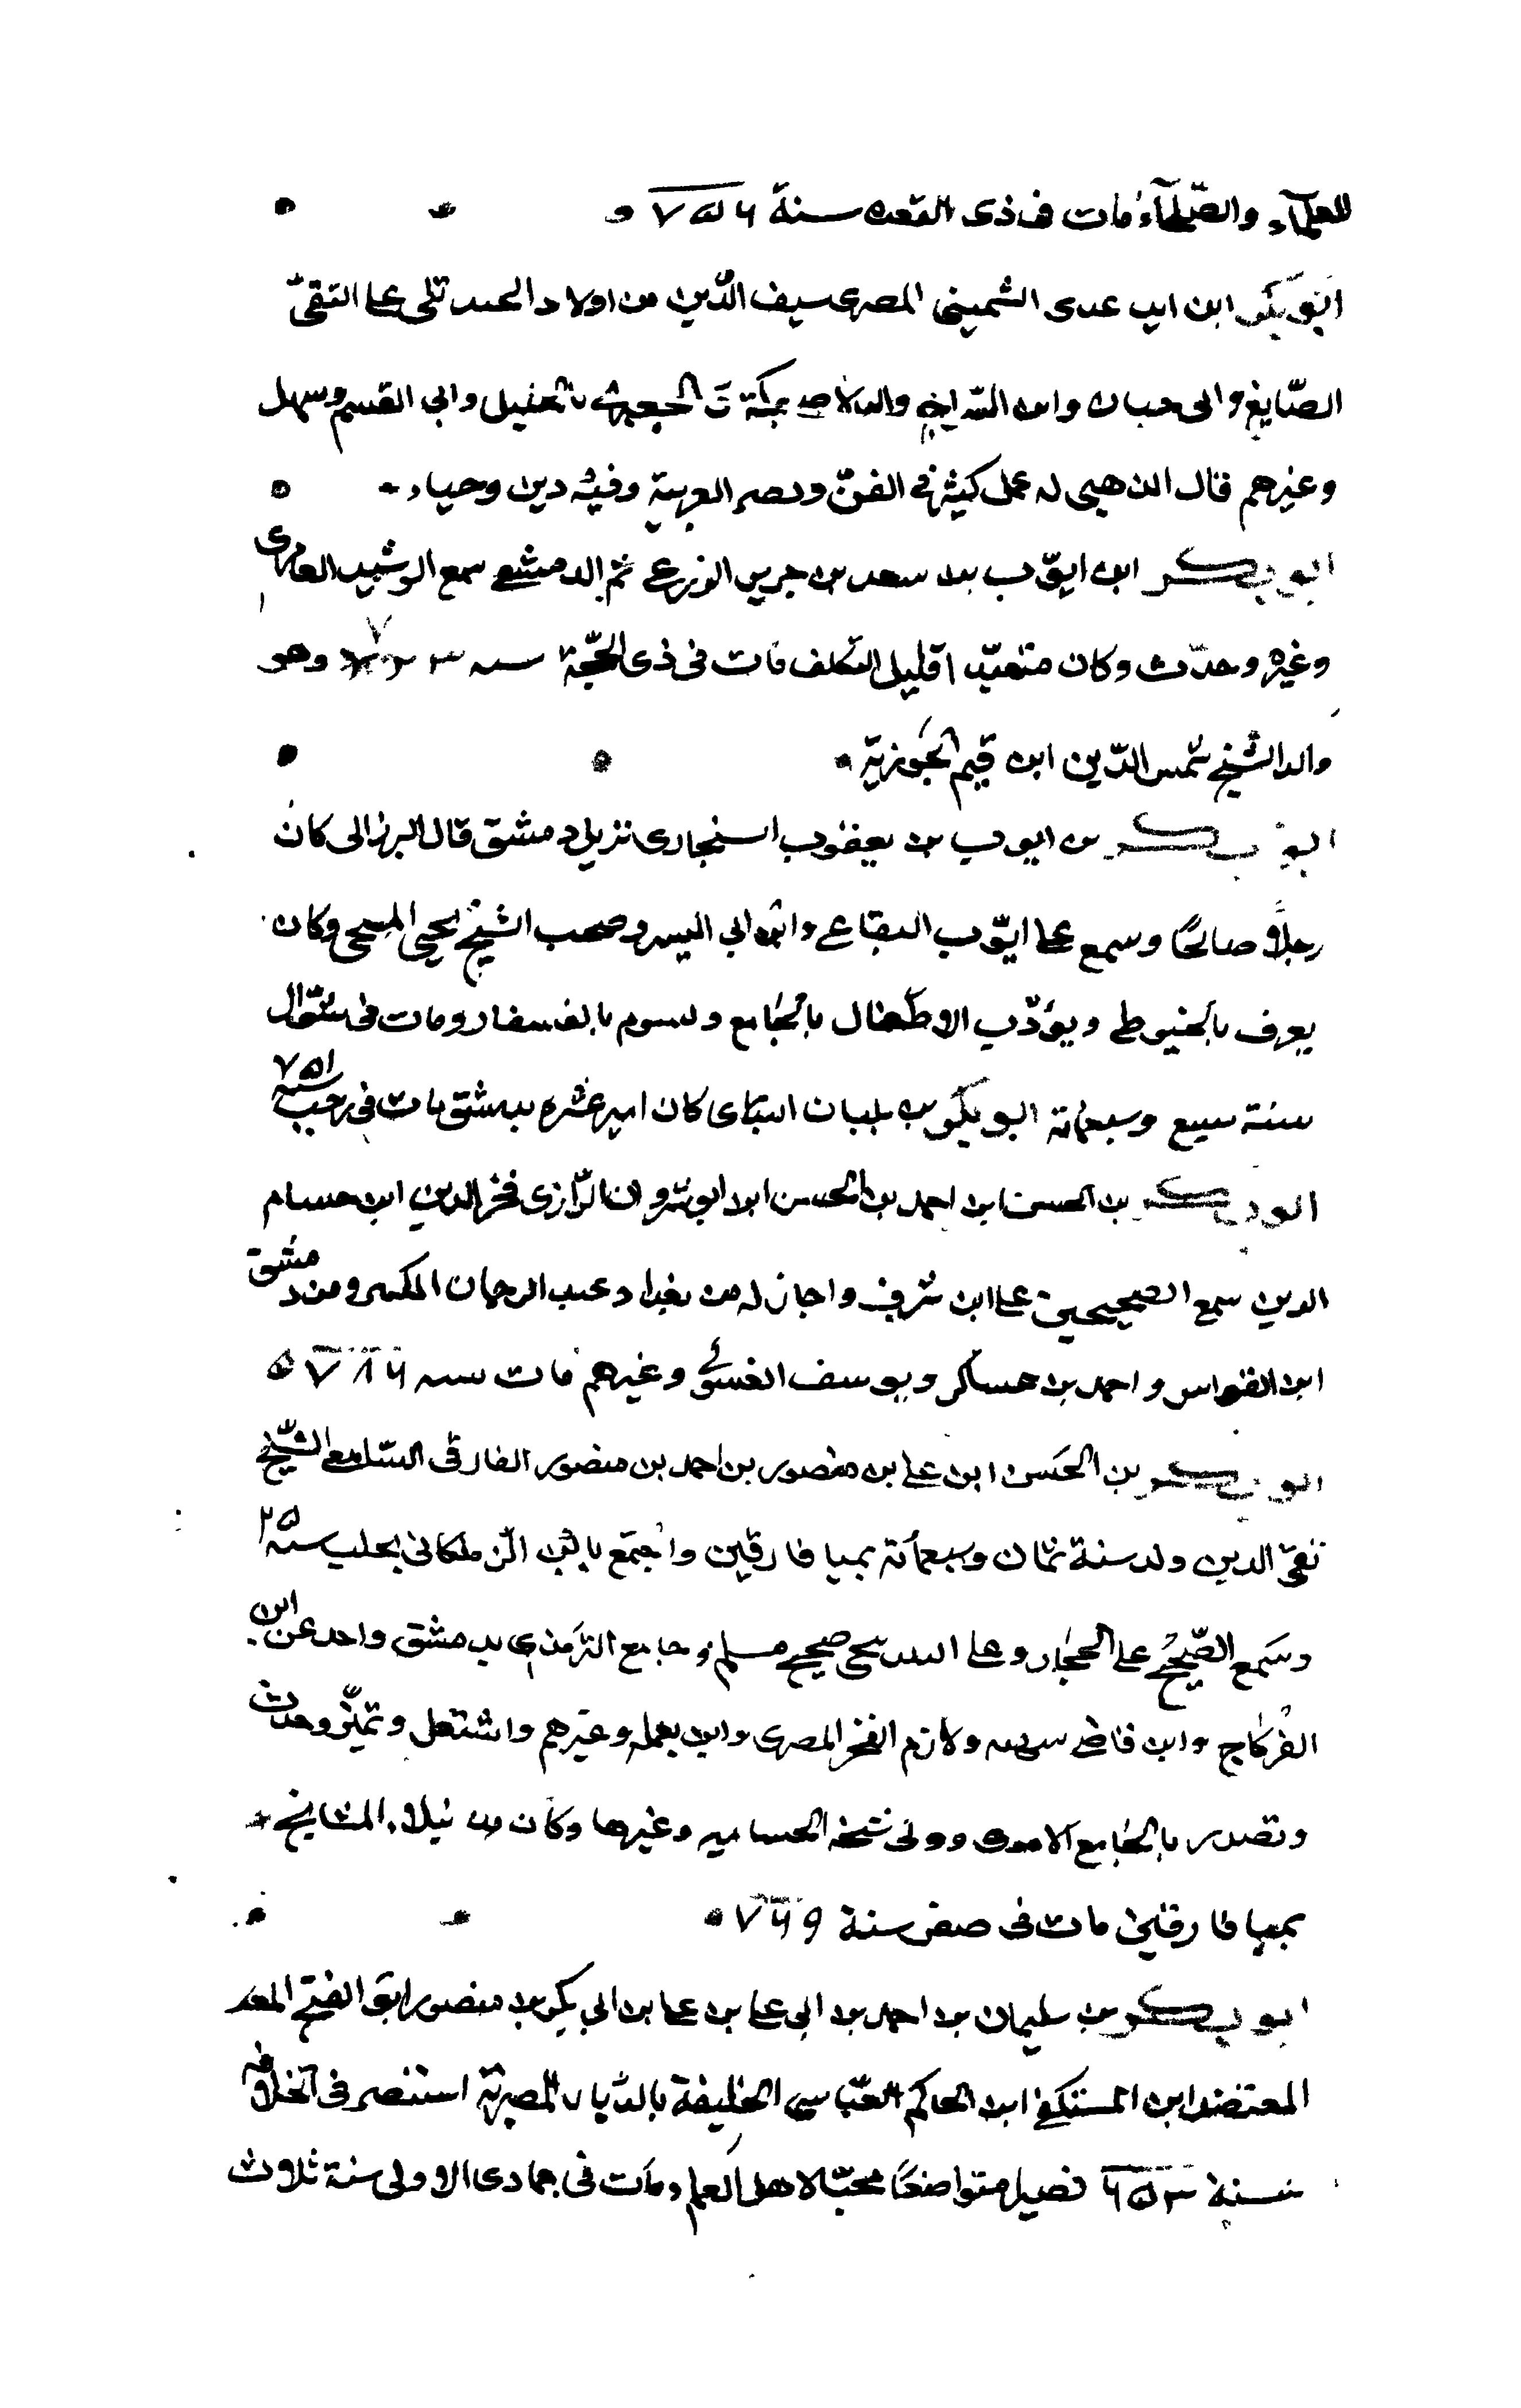 للعلمآء والصّلحآء مات فى ذى القعده سنة ٧٥٦
ابو بكر ابن ايب عدى الشمينى المصرى سيف الدّين من اولاد الجند تلى على التقىّ
الصّايغ وابى حبان وابن السّراج والدلاصى بمكة والجعبرى بالخليل وابى القسم وسهل
وغيرهم قال الذهبى له عمل كثير فى الفنّ وبصر العربية وفيه دين وحياء
ابو بكر ابن ايوّب بن سعد بن جرير الزرعى ثم الدمشقى سمع الرشيد العامرى
وغيره وحدّث وكان متعبّدا قليل التكلف مات فى ذى الحجّة سنه ٧٢٣ وهو
والد الشيخ شمس الدّين ابن قيم الجوزية
ابو بكر بن ايوب بن يعقوب السنجارى نزيل دمشق قال البرزالى كان
رجلاً صالحًا وسمع على ايّوب الفقاعى وابن ابى اليسر وصحب الشيخ يحيى المنبجى وكان
يعرف بالخيوطى ويؤدّب الاطفال بالجامع ومات فى شوّال
سنة سبع وسبعمائة ابو بكر بن بلبان البتاى كان امير عشره بدمشق مات فى رجب سنه ٧٥١
ابو بكر بن الحسن ابن احمد بن الحسن ابن انوشروان الرّازى فخر الدين ابن حسام
الدين سمع الصحيحين على ابن شرف واجاز له من بغداد عبد الرحمان المكبر ومن دمشق
ابن القواس واحمد بن عساكر ويوسف الغسولى وغيرهم مات سنه ٧٨٦
ابو بكر بن الحسن ابن على بن منصور بن احمد بن منصور الفارقى السّلامى الشيخ
تقىّ الدين ولد سنة ثمان وسبعمائة بميا فارقين واجتمع بابن الزملكانى بحلب سنة ٢٥
وسمع الصّحيح على الحجار وعلى البندنيجى صحيح مسلم وجامع الترمذى بدمشق واخذ عن ابن
الفركاح وابن قاضى شهبه ولازم الفخر المصرى وابن جمله وغيرهم واشتغل وتميّز وحدث
وتصدر بالجامع الاموى وولى مشيخة الحساميه وغيرها وكان من نبلاء المشايخ
بميا فارقين مات فى صفر سنة ٧٦٩
ابو بكر بن سليمان بن احمد بن ابى على بن على بن ابى بكر بن منصور ابو الفتح المعتـ
المعتضد ابن المستكفى ابن الحاكم العبّاسى الخليفة بالديار المصرية استنصر فى الخلافه
سنة ٦٥٣ متواضعًا محبّا لاهل العلم ومات فى جمادى الاولى سنة ثلاث